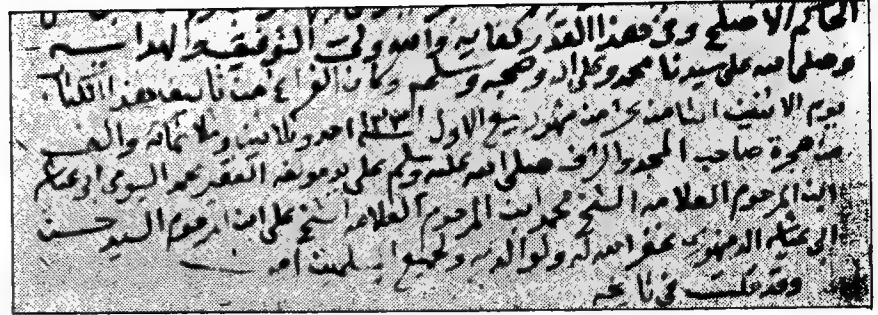 الحاكم الاصلح وفى هذا القدر كفاية والله ولى التوفيق والهداية
وصلى الله على سيدنا محمد وعلى اله وصحبه وسلم وكان الفراغ من تأليف هذا الكتاب
يوم الاثنين الثامن من شهور ربيع الاول ١٣٣١ احد وثلاثين وثلاثمائة والف
من هجرة صاحب المجد والشرف صلى الله عليه وسلم على يد مؤلفه الفقير محمد البيومى ابو عياشه
ابن المرحوم العلامه الشيخ محمد ابن المرحوم العلامه الشيخ على ابن المرحوم السيد حسن
ابى عياشه الدمنهورى غفر الله له ولوالديه ولجميع المسلمين امين
وقد قلت فى تاريخه